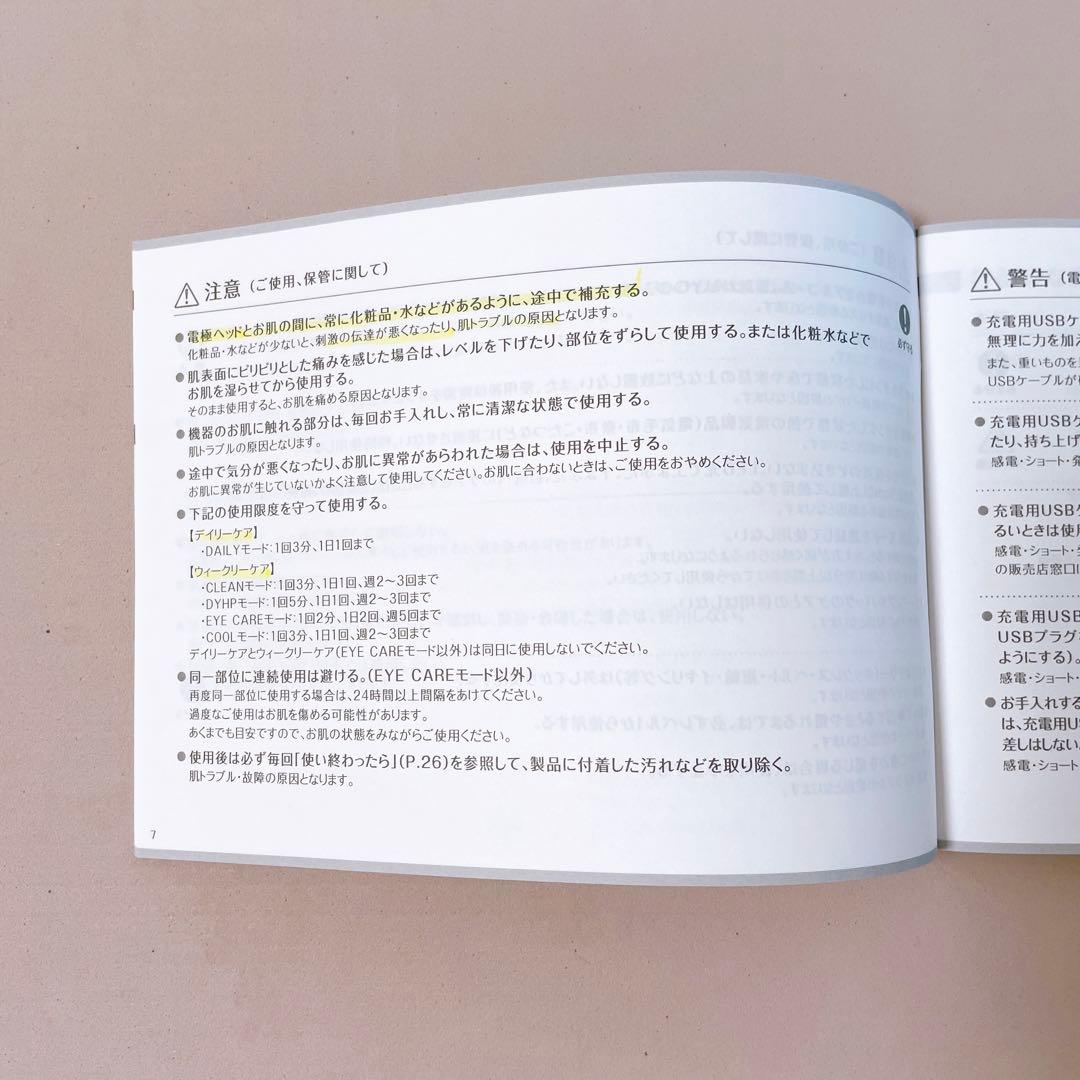 注意(ご使用、保管に関して)
●電極ヘッドとお肌の間に、常に化粧品・水などがあるように、途中で補充する。
化粧品・水などが少ないと、刺激の伝達が悪くなったり、肌トラブルの原因となります。
●肌表面にピリピリとした痛みを感じた場合は、レベルを下げたり、部位をずらして使用する。または化粧水などで
お肌を湿らせてから使用する。
そのまま使用すると、お肌を痛める原因となります。
●機器のお肌に触れる部分は、毎回お手入れし、常に清潔な状態で使用する。
肌トラブルの原因となります。
●途中で気分が悪くなったり、お肌に異常があらわれた場合は、使用を中止する。
お肌に異常が生じていないかよく注意して使用してください。お肌に合わないときは、ご使用をおやめください。
●下記の使用限度を守って使用する。
【デイリーケア】
・DAILYモード:1回3分、1日1回まで
【ウィークリーケア】
・CLEANモード:1回3分、1日1回、週2〜3回まで
・DYHPモード:1回5分、1日1回、週2〜3回まで
・EYE CAREモード:1回2分、1日2回、週5回まで
・COOLモード:1回3分、1日1回、週2〜3回まで
デイリーケアとウィークリーケア(EYE CAREモード以外)は同日に使用しないでください。
●同一部位に連続使用は避ける。(EYE CAREモード以外)
再度同一部位に使用する場合は、24時間以上間隔をあけてください。
過度なご使用はお肌を傷める可能性があります。
あくまでも目安ですので、お肌の状態をみながらご使用ください。
●使用後は必ず毎回「使い終わったら」(P.26)を参照して、製品に付着した汚れなどを取り除く。
肌トラブル・故障の原因となります。
必ず守る
7
警告(電
●充電用USBケ
無理に力を加え
また、重いものを
USBケーブルが
●充電用USBケ
たり、持ち上げ
感電・ショート・発
●充電用USBケ
るいときは使用
感電・ショート・
の販売店窓口に
●充電用USBケ
USBプラグ
ようにする)。
感電・ショート・
●お手入れする
は、充電用US
差しはしない。
感電・ショート